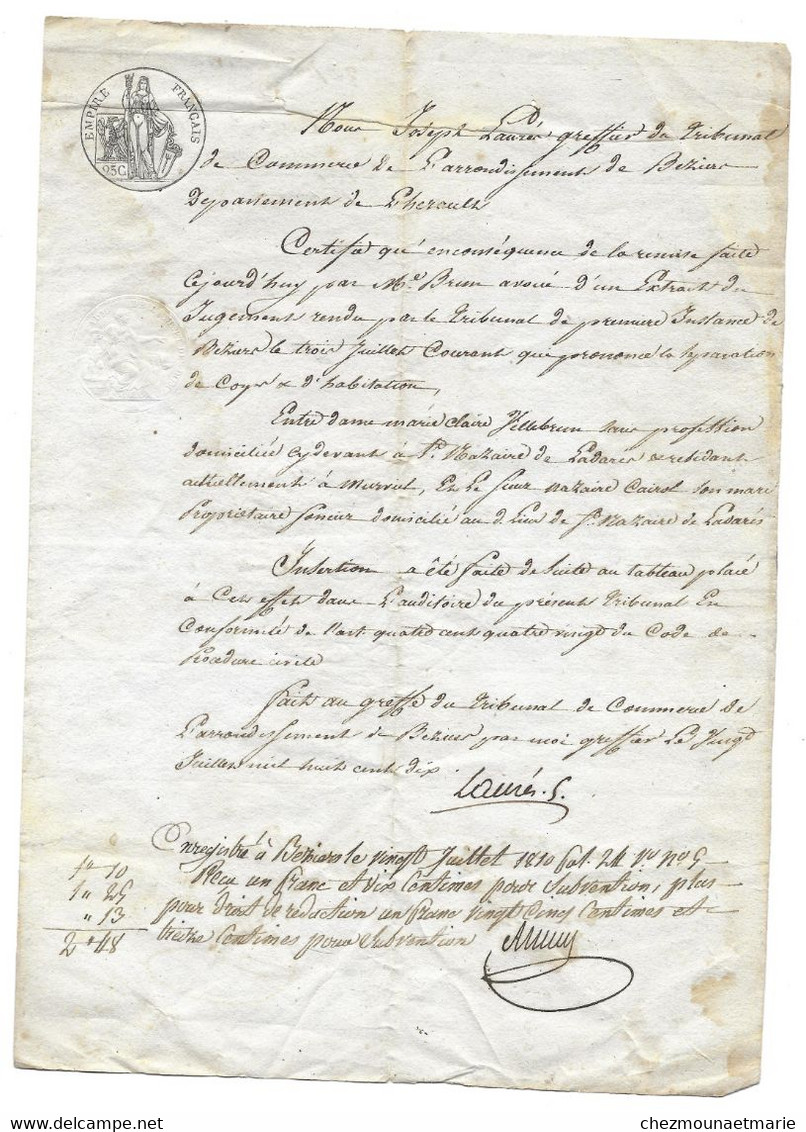 EMPIRE FRANÇAIS
25C
Nous Joseph Laurés greffier du tribunal
de Commerce de L'arrondissement de Beziers
Departement de L'herault
Certifie qu'enconséquence de la remise faite
Cejourd'huy par Me Brun avoué d'un Extrait du
Jugement rendu par le tribunal de premiere Instance de
Beziers le trois Juillet Courant que prononce la separation
de Corps & d'habitation,
Entre dame marie Claire Villebrun sans profession
domiciliée cydevant à St. Nazaire de Ladares & residant
actuellement à Murviel, Et Le sieur nazaire Cairol son mari
Propriétaire foncier domicilié au d. Lieu de St. Nazaire de Ladarés
Insertion a été faite de suite au tableau placé
à Cet effet dans L'auditoire du présent tribunal En
Conformité de l'art. quatre cent quatre vingt du Code de
Procedure civile
fait au greffe du tribunal de Commerce de
L'arrondissement de Beziers par moi greffier Le vingt
Juillet mil huit cent dix
Laurés. G.
Enregistré à Beziers le vingt Juillet 1810 fol. 24 Vo No 5
1" 10 Reçu un franc et dix Centimes pour Subvention, plus
1" 25 pour droit de redaction un franc vingt cinq Centimes et
" 13 treize Centimes pour Subvention
2" 48
chezmounaetmarie